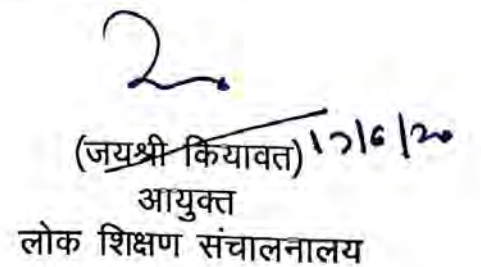 (जयश्री कियावत)
आयुक्त
लोक शिक्षण संचालनालय